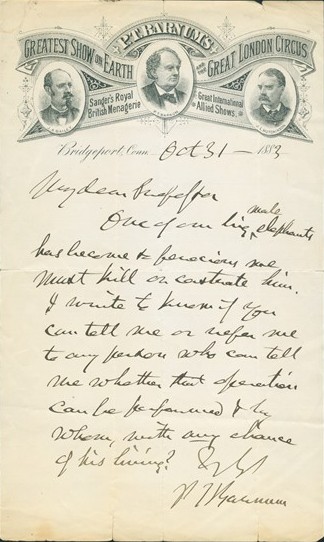 P.T. BARNUM'S
GREATEST SHOW ON EARTH
AND THE GREAT LONDON CIRCUS
Sanger's Royal
British Menagerie
Great International
Allied Shows.
Bridgeport, Conn. Oct 31 - 1883
My dear Professor
One of our big male elephants
has become so ferocious we
must kill or castrate him.
I write to know if you
can tell me or refer me
to any person who can tell
me whether that operation
can be performed & by
whom, with any chance
of his living?
P T Barnum